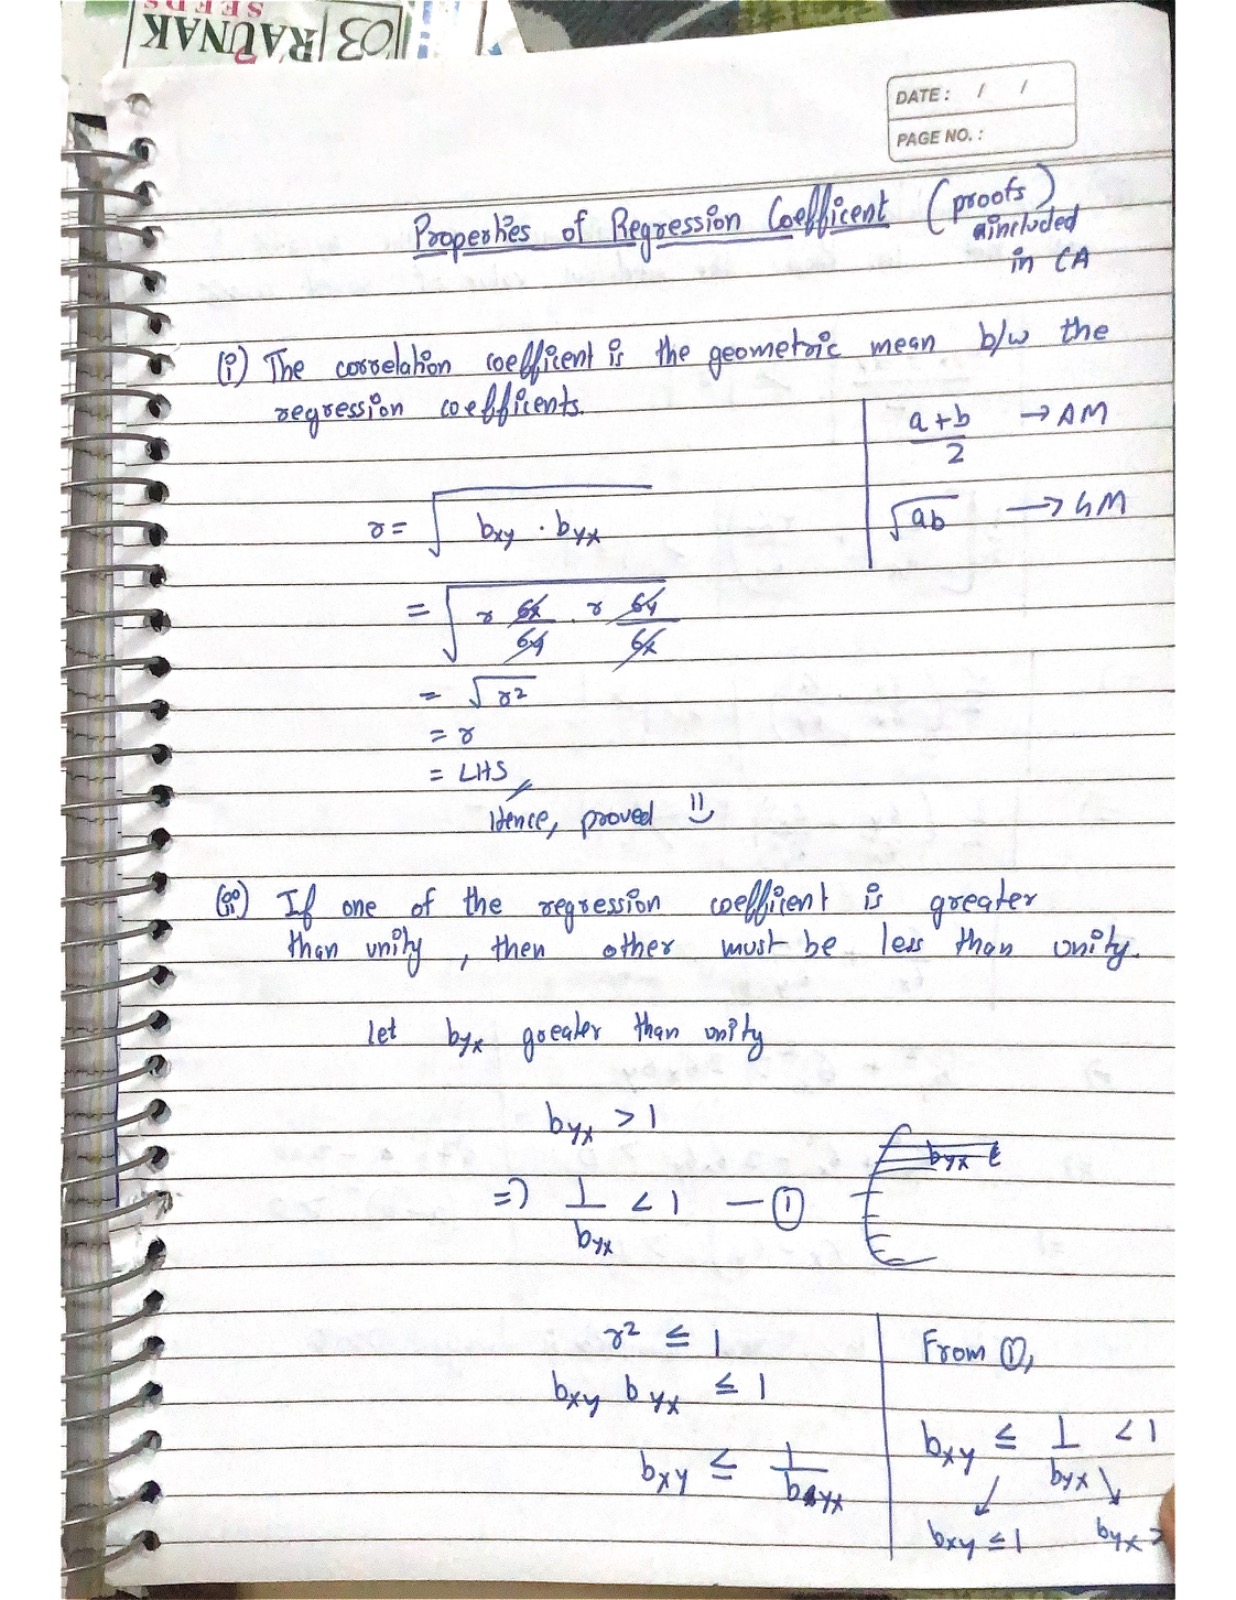 SEEDS
03 RAUNAK
DATE: / /
PAGE NO. :
Properties of Regression Coefficent (proofs)
included
in CA
(i) The correlation coefficient is the geometric mean b/w the
regression coefficents.
a+b/2 → AM
√ab → GM
r = √(bxy · byx)
= √(r σx/σy . r σy/σx)
= √r²
= r
= LHS
Hence, proved
(ii) If one of the regression coefficient is greater
than unity, then other must be less than unity.
let byx greater than unity
byx > 1
=> 1/byx < 1 — ①
byx
r² ≤ 1
bxy byx ≤ 1
bxy ≤ 1/byx
From ①,
bxy ≤ 1/byx < 1
bxy ≤ 1 byx >